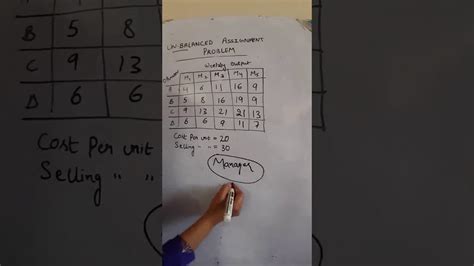 UN-BALANCED ASSIGNMENT
PROBLEM
Weekly Output
M1 M2 M3 M4 M5
A 4 6 11 16 9
B 5 8 16 19 9
C 9 13 21 21 13
D 6 6 9 11 7
Cost Per unit = 20
Selling " " = 30
Manager
B 5 8
C 9 13
D 6 6
Cost Per unit
Selling " "